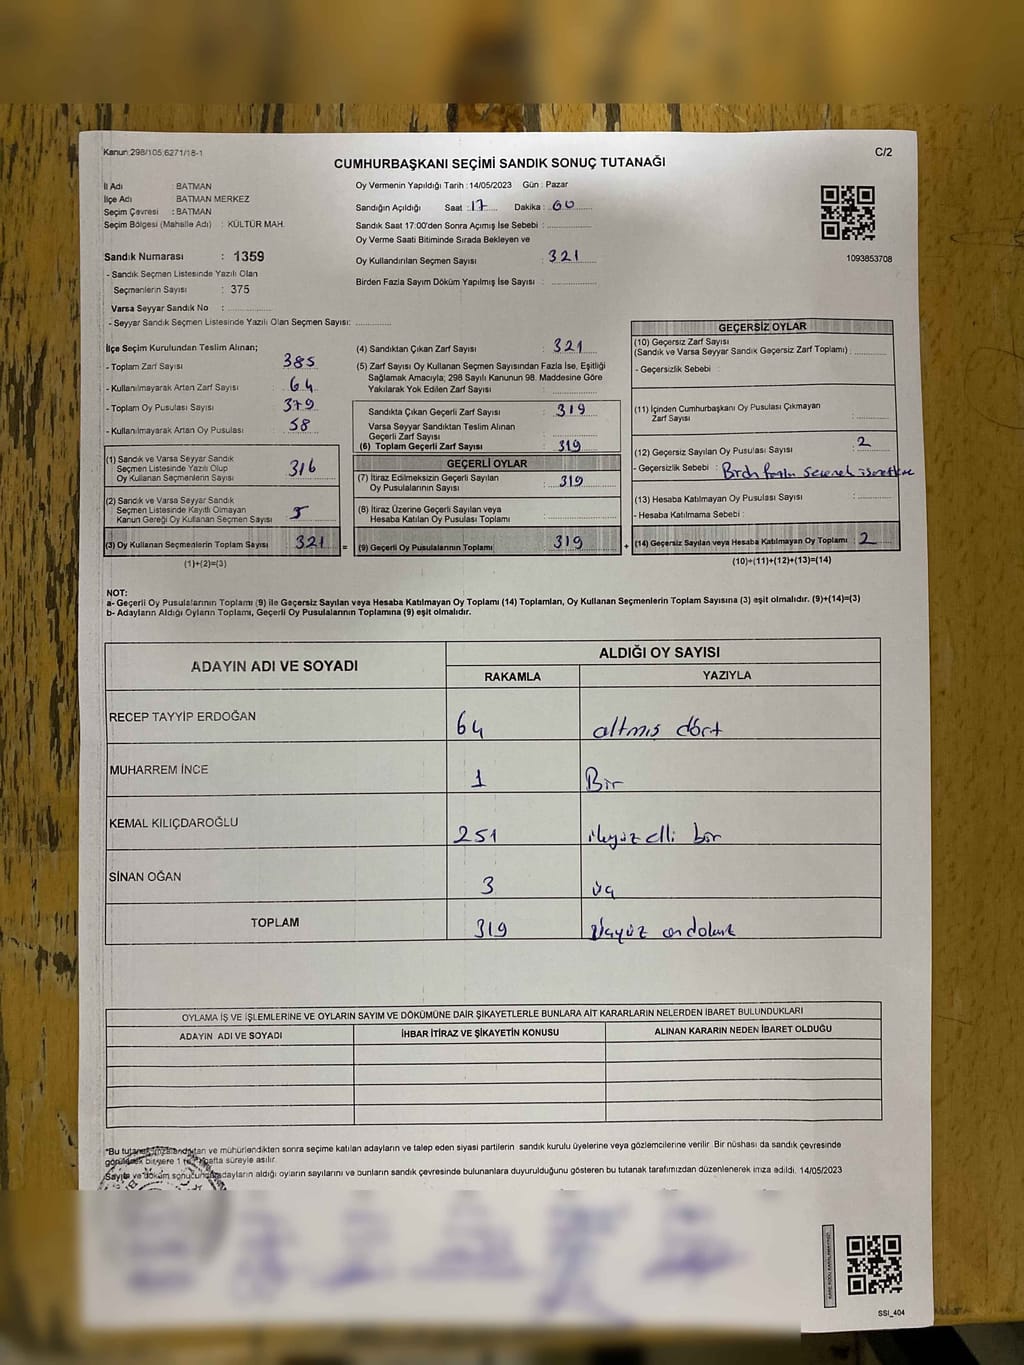 Kanun: 298/105;6271/18-1
CUMHURBAŞKANI SEÇİMİ SANDIK SONUÇ TUTANAĞI
C/2
İl Adı : BATMAN
İlçe Adı BATMAN MERKEZ
Seçim Çevresi : BATMAN
Seçim Bölgesi (Mahalle Adı) : KÜLTÜR MAH.
Sandık Numarası : 1359
- Sandık Seçmen Listesinde Yazılı Olan
Seçmenlerin Sayısı : 375
Varsa Seyyar Sandık No :
- Seyyar Sandık Seçmen Listesinde Yazılı Olan Seçmen Sayısı:
Oy Vermenin Yapıldığı Tarih : 14/05/2023 Gün : Pazar
Sandığın Açıldığı Saat : 17 Dakika : 00
Sandık Saat 17:00'den Sonra Açımış İse Sebebi :
Oy Verme Saati Bitiminde Sırada Bekleyen ve
Oy Kullandırılan Seçmen Sayısı : 321
Birden Fazla Sayım Döküm Yapılmış İse Sayısı :
1093853708
İlçe Seçim Kurulundan Teslim Alınan;
- Toplam Zarf Sayısı : 385
- Kullanılmayarak Artan Zarf Sayısı : 64
- Toplam Oy Pusulası Sayısı : 379
- Kullanılmayarak Artan Oy Pusulası : 58
(1) Sandık ve Varsa Seyyar Sandık
Seçmen Listesinde Yazılı Olup
Oy Kullanan Seçmenlerin Sayısı : 316
(2) Sandık ve Varsa Seyyar Sandık
Seçmen Listesinde Kayıtlı Olmayan
Kanun Gereği Oy Kullanan Seçmen Sayısı : 5
(3) Oy Kullanan Seçmenlerin Toplam Sayısı : 321 =
(1)+(2)=(3)
(4) Sandıktan Çıkan Zarf Sayısı : 321
(5) Zarf Sayısı Oy Kullanan Seçmen Sayısından Fazla İse, Eşitliği
Sağlamak Amacıyla; 298 Sayılı Kanunun 98. Maddesine Göre
Yakılarak Yok Edilen Zarf Sayısı :
Sandıkta Çıkan Geçerli Zarf Sayısı : 319
Varsa Seyyar Sandıktan Teslim Alınan
Geçerli Zarf Sayısı :
(6) Toplam Geçerli Zarf Sayısı : 319
GEÇERLİ OYLAR
(7) İtiraz Edilmeksizin Geçerli Sayılan
Oy Pusulalarının Sayısı : 319
(8) İtiraz Üzerine Geçerli Sayılan veya
Hesaba Katılan Oy Pusulası Toplamı :
(9) Geçerli Oy Pusulalarının Toplamı : 319 +
GEÇERSİZ OYLAR
(10) Geçersiz Zarf Sayısı
(Sandık ve Varsa Seyyar Sandık Geçersiz Zarf Toplamı) :
- Geçersizlik Sebebi :
(11) İçinden Cumhurbaşkanı Oy Pusulası Çıkmayan
Zarf Sayısı :
(12) Geçersiz Sayılan Oy Pusulası Sayısı : 2
- Geçersizlik Sebebi :
(13) Hesaba Katılmayan Oy Pusulası Sayısı :
- Hesaba Katılmama Sebebi :
(14) Geçersiz Sayılan veya Hesaba Katılmayan Oy Toplamı : 2
(10)+(11)+(12)+(13)=(14)
NOT:
a- Geçerli Oy Pusulalarının Toplamı (9) ile Geçersiz Sayılan veya Hesaba Katılmayan Oy Toplamı (14) Toplamları, Oy Kullanan Seçmenlerin Toplam Sayısına (3) eşit olmalıdır. (9)+(14)=(3)
b- Adayların Aldığı Oyların Toplamı, Geçerli Oy Pusulalarının Toplamına (9) eşit olmalıdır.
ADAYIN ADI VE SOYADI ALDIĞI OY SAYISI
RAKAMLA YAZIYLA
RECEP TAYYİP ERDOĞAN 64 altmış dört
MUHARREM İNCE 1 Bir
KEMAL KILIÇDAROĞLU 251 ikiyüz elli bir
SİNAN OĞAN 3 üç
TOPLAM 319
OYLAMA İŞ VE İŞLEMLERİNE VE OYLARIN SAYIM VE DÖKÜMÜNE DAİR ŞİKAYETLERLE BUNLARA AİT KARARLARIN NELERDEN İBARET BULUNDUKLARI
ADAYIN ADI VE SOYADI İHBAR İTİRAZ VE ŞİKAYETİN KONUSU ALINAN KARARIN NEDEN İBARET OLDUĞU
*Bu tutanak ve mühürlendikten sonra seçime katılan adayların ve talep eden siyasi partilerin sandık kurulu üyelerine veya gözlemcilerine verilir. Bir nüshası da sandık çevresinde
bir yere 1 hafta süreyle asılır.
Sayım ve döküm sonucunda adayların aldığı oyların sayılarını ve bunların sandık çevresinde bulunanlara duyurulduğunu gösteren bu tutanak tarafımızdan düzenlenerek imza edildi. 14/05/2023
SSI_404